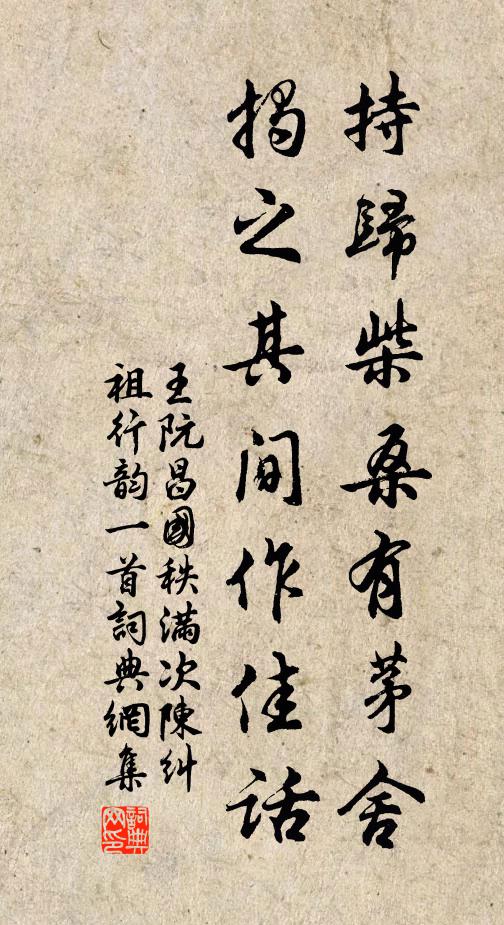 持歸柴桑有茅舍
揭之其間作佳話
王阮昌國秩滿次陳糾
祖行韵一首詞典網集
詞典网印